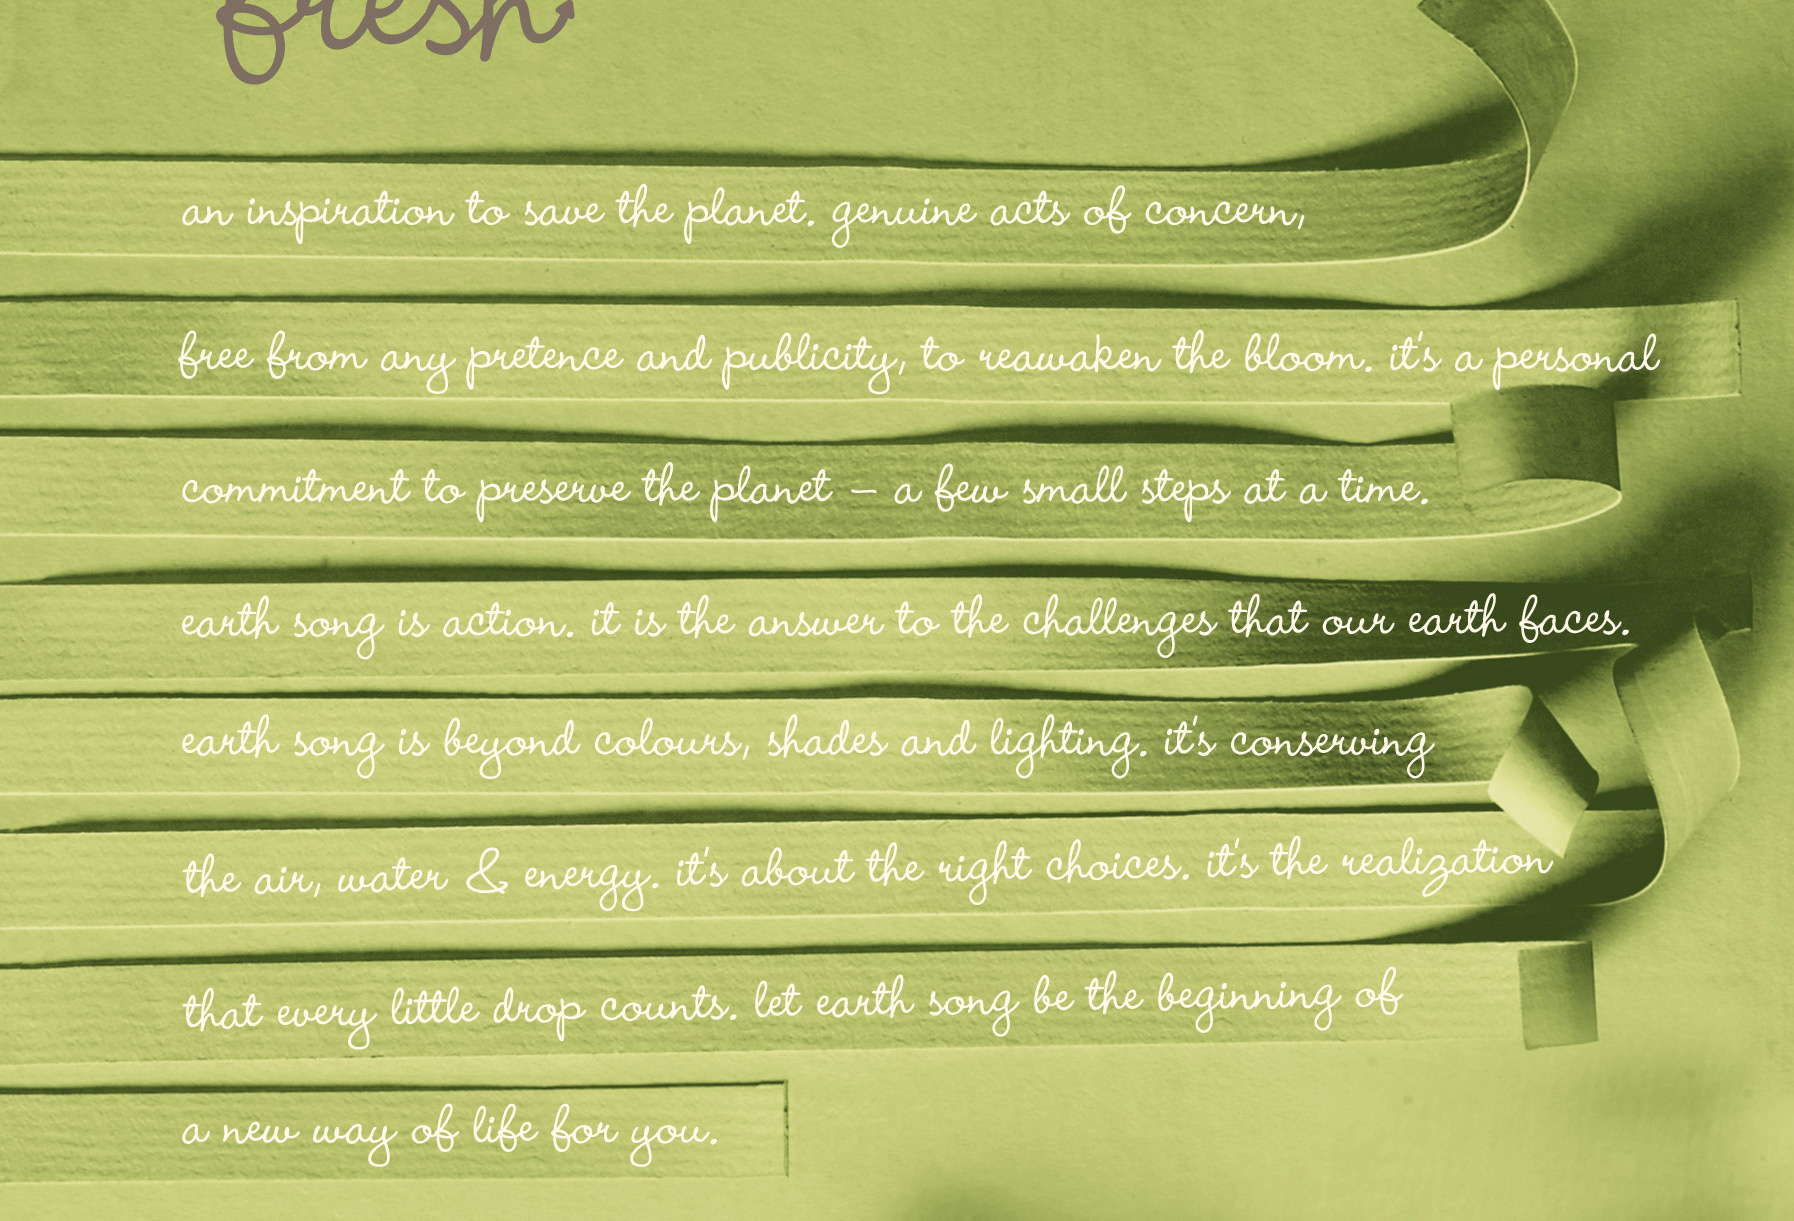 fresh
an inspiration to save the planet. genuine acts of concern,
free from any pretence and publicity, to reawaken the bloom. it's a personal
commitment to preserve the planet – a few small steps at a time.
earth song is action. it is the answer to the challenges that our earth faces.
earth song is beyond colours, shades and lighting. it's conserving
the air, water & energy. it's about the right choices. it's the realization
that every little drop counts. let earth song be the beginning of
a new way of life for you.